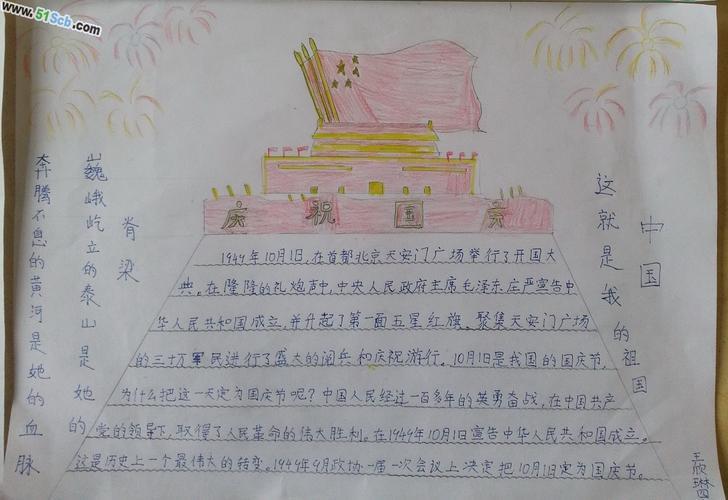 www.51Scb.com
庆祝国庆
奔腾不息的黄河是她的血脉
巍峨屹立的泰山是她的
脊梁
这就是我的祖国
中国
1949年10月1日,在首都北京天安门广场举行了开国大
典。在隆隆的礼炮声中,中央人民政府主席毛泽东庄严宣告中
华人民共和国成立,并升起了第一面五星红旗。聚集天安门广场
的三十万军民进行了盛大的阅兵和庆祝游行。10月1日是我国的国庆节,
为什么把这一天定为国庆节呢?中国人民经过一百多年的英勇奋战,在中国共产
党的领导下,取得了人民革命的伟大胜利。在1949年10月1日宣告中华人民共和国成立。
这是历史上一个最伟大的转变。1949年9月政协一届一次会议上决定把10月1日定为国庆节。